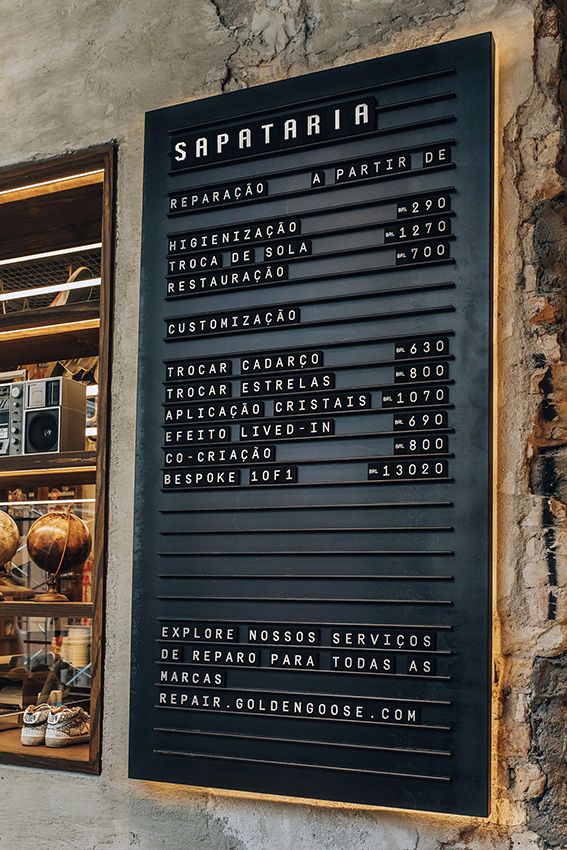 SAPATARIA
REPARAÇÃO A PARTIR DE
HIGIENIZAÇÃO BRL 290
TROCA DE SOLA BRL 1270
RESTAURAÇÃO BRL 700
CUSTOMIZAÇÃO
TROCAR CADARÇO BRL 630
TROCAR ESTRELAS BRL 800
APLICAÇÃO CRISTAIS BRL 1070
EFEITO LIVED-IN BRL 690
CO-CRIAÇÃO BRL 800
BESPOKE 1OF1 BRL 13020
EXPLORE NOSSOS SERVIÇOS
DE REPARO PARA TODAS AS
MARCAS
REPAIR.GOLDENGOOSE.COM